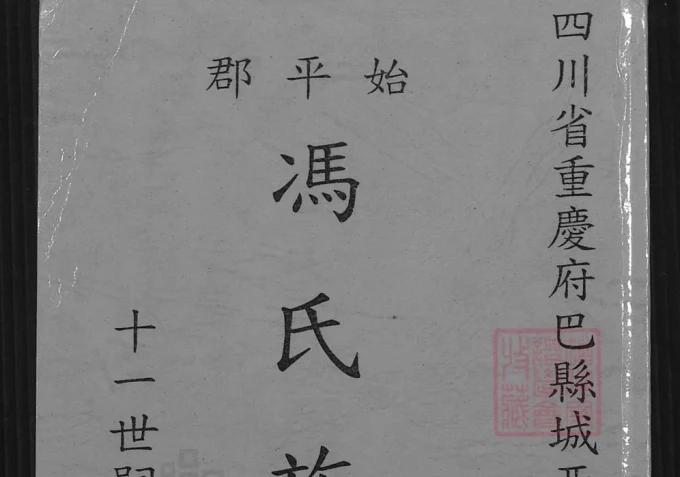 四川省重慶府巴縣城
始平郡
馮氏
十一世